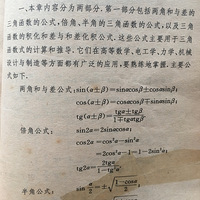 一、本章内容分为两部分。第一部分包括两角和与差的
三角函数的公式,倍角、半角的三角函数的公式,以及三角
函数的积化和差与和差化积公式。这些公式主要用于三角
函数式的计算和推导。它们在高等数学、电工学、力学、机械
设计与制造等方面都有广泛的应用,要熟练地掌握。主要公
式如下。
两角和与差公式:sin(α±β)=sinαcosβ±cosαsinβ;
cos(α±β)=cosαcosβ∓sinαsinβ;
tg(α±β)=(tgα±tgβ)/(1∓tgαtgβ)
倍角公式: sin2α=2sinαcosα;
cos2α=cos²α-sin²α
=2cos²α-1=1-2sin²α;
tg2α=2tgα/(1-tg²α).
半角公式: sin α/2=±√((1-cosα)/2);